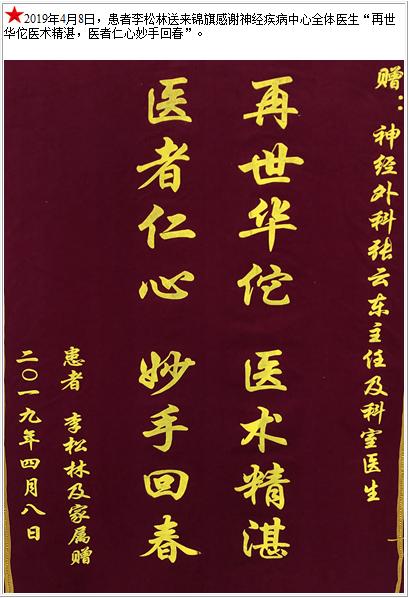 ★2019年4月8日，患者李松林送来锦旗感谢神经疾病中心全体医生“再世
华佗医术精湛，医者仁心妙手回春”。
赠：神经外科张云东主任及科室医生
再世华佗 医术精湛
医者仁心 妙手回春
患者 李松林及家属赠
二〇一九年四月八日